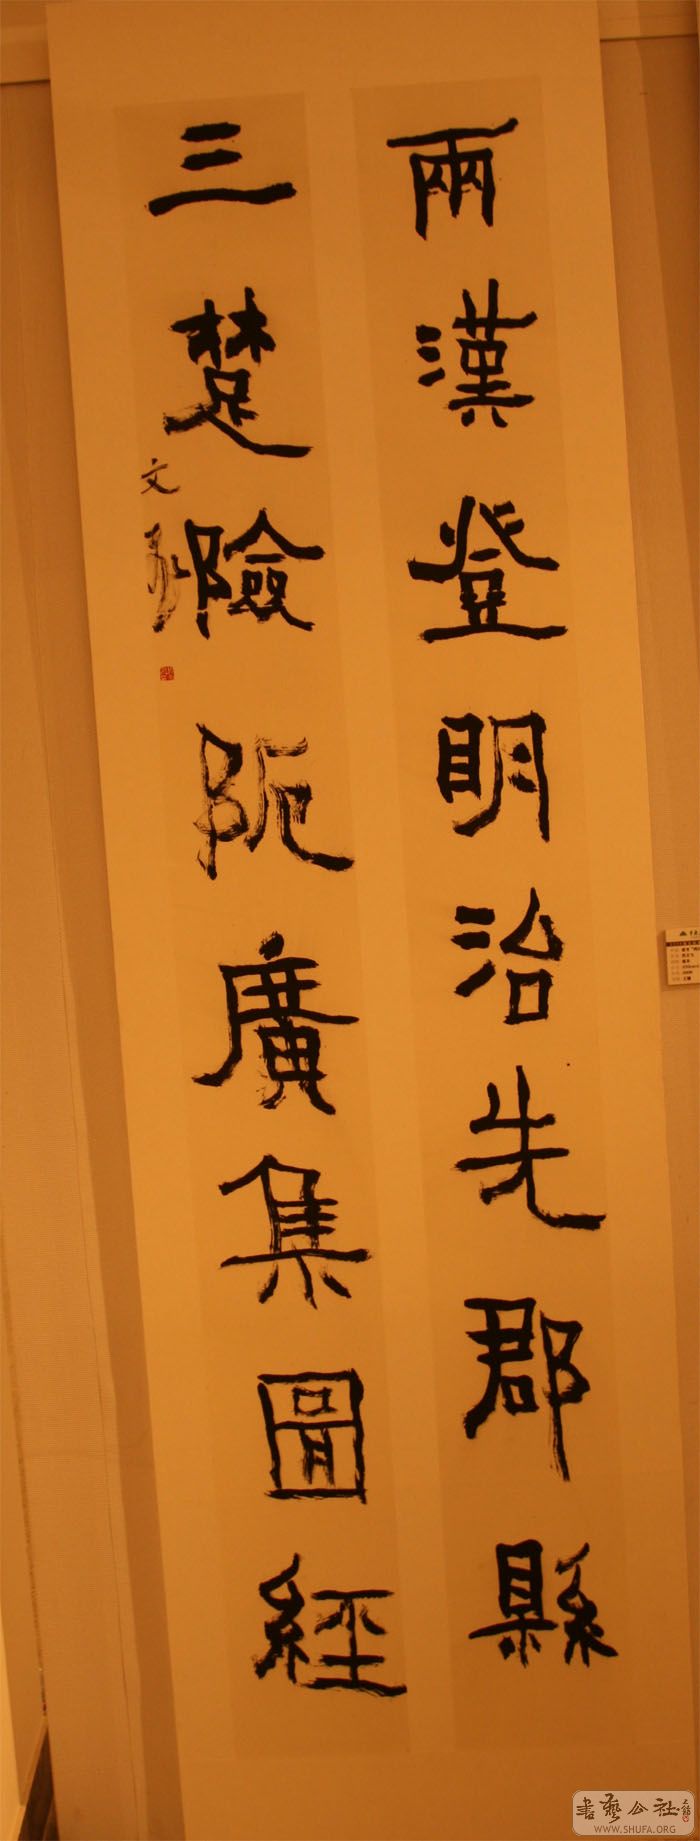 兩漢登明治先郡縣
三楚險阨廣集圖經
文
書藝公社
WWW.SHUFA.ORG